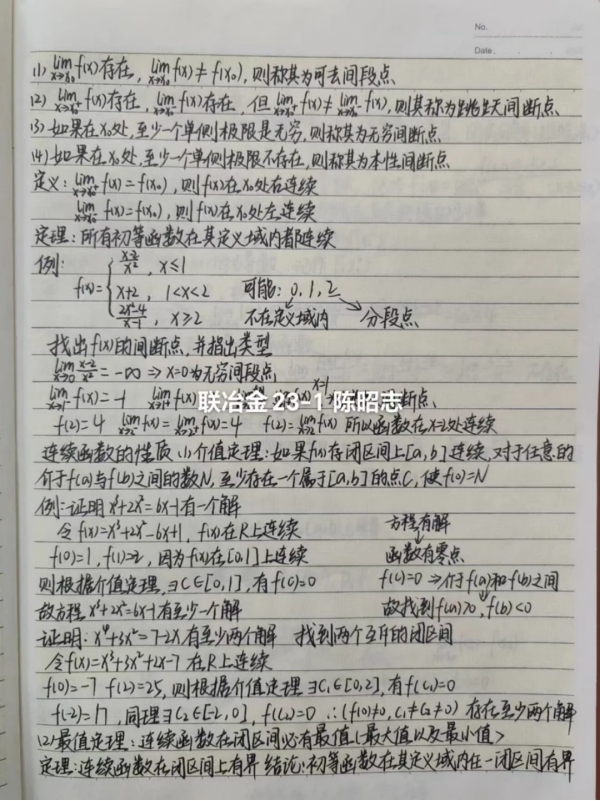 No.
Date.
(1) lim x→x₀ f(x)存在, lim x→x₀ f(x) ≠ f(x₀), 则称其为可去间段点
(2) lim x→x₀⁺ f(x)存在, lim x→x₀⁻ f(x)存在, 但 lim x→x₀⁺ f(x) ≠ lim x→x₀⁻ f(x), 则其称为跳跃间断点
(3) 如果在x₀处,至少一个单侧极限是无穷,则称其为无穷间断点
(4) 如果在x₀处,至少一个单侧极限不存在,则称其为本性间断点
定义: lim x→x₀⁺ f(x) = f(x₀), 则f(x)在x₀处右连续
lim x→x₀⁻ f(x) = f(x₀), 则f(x)在x₀处左连续
定理: 所有初等函数在其定义域内都连续
例:
f(x) = { (x-2)/x², x≤1
x+2, 1<x<2 可能: 0, 1, 2
(2x²-4)/(x-1), x≥2 不在定义域内 分段点
找出f(x)的间断点,并指出类型
lim x→0 (x-2)/x² = -∞ ⇒ x=0为无穷间段点
lim x→1⁻ f(x) = -1 lim x→1⁺ f(x) x=1 断点
联冶金 23-1 陈昭志
f(2)=4 lim x→2⁻ f(x) = lim x→2⁺ f(x) = 4 f(2) = lim x→2 f(x) 所以函数在x=2处连续
连续函数的性质 (1)介值定理: 如果f(x)在闭区间上[a,b]连续,对于任意的
介于f(a)与f(b)之间的数N,至少存在一个属于[a,b]的点C,使f(c)=N
例: 证明x³+2x²=6x-1有一个解
令f(x)=x³+2x²-6x+1, f(x)在R上连续 方程有解
f(0)=1, f(1)=-2, 因为f(x)在[0,1]上连续 函数有零点
则根据介值定理, ∃C∈[0,1], 有f(c)=0 f(c)=0 ⇒介于f(a)和f(b)之间
故方程x³+2x²=6x-1有至少一个解 故找到f(a)>0, f(b)<0
证明: x⁴+3x²=7-2x有至少两个解 找到两个互斥的闭区间
令f(x)=x⁴+3x²+2x-7 在R上连续
f(0)=-7 f(2)=25, 则根据介值定理 ∃C₁∈[0,2], 有f(c₁)=0
f(-2)=17, 同理∃C₂∈[-2,0], f(C₂)=0 ∴(f(0)≠0, C₁≠C₂≠0) 存在至少两个解
(2)最值定理: 连续函数在闭区间必有最值<最大值以及最小值>
定理: 连续函数在闭区间上有界 结论: 初等函数在其定义域内任一闭区间有界